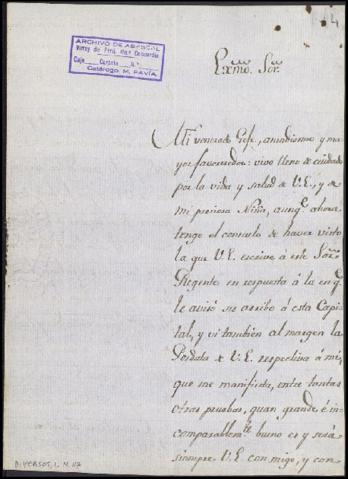 ARCHIVO DE ABASCAL
Virrey de Perú, Mqs. Concordia
Caja Carpeta N.º
Catálogo M. PAVÍA
4
Exmo. Sor.
Mi venerado Gefe, amadísimo y ma-
yor favorecedor: vivo lleno de cuidado
por la vida y salud de V.E., y de
mi preciosa Niña, aunq.e ahora
tengo el consuelo de haver visto
la que V.E. escrive á este Sor.
Regente en respuesta á la en q.e
le avisó su arribo á esta Capi-
tal, y vi también al margen la
Posdata de V.E. respectiva á mí,
que me manifiesta, entre tantas
otras pruebas, quan grande, é in-
comparablem.te bueno es y será
siempre V.E. conmigo, y con
DIVERSOS, 1, N. 117